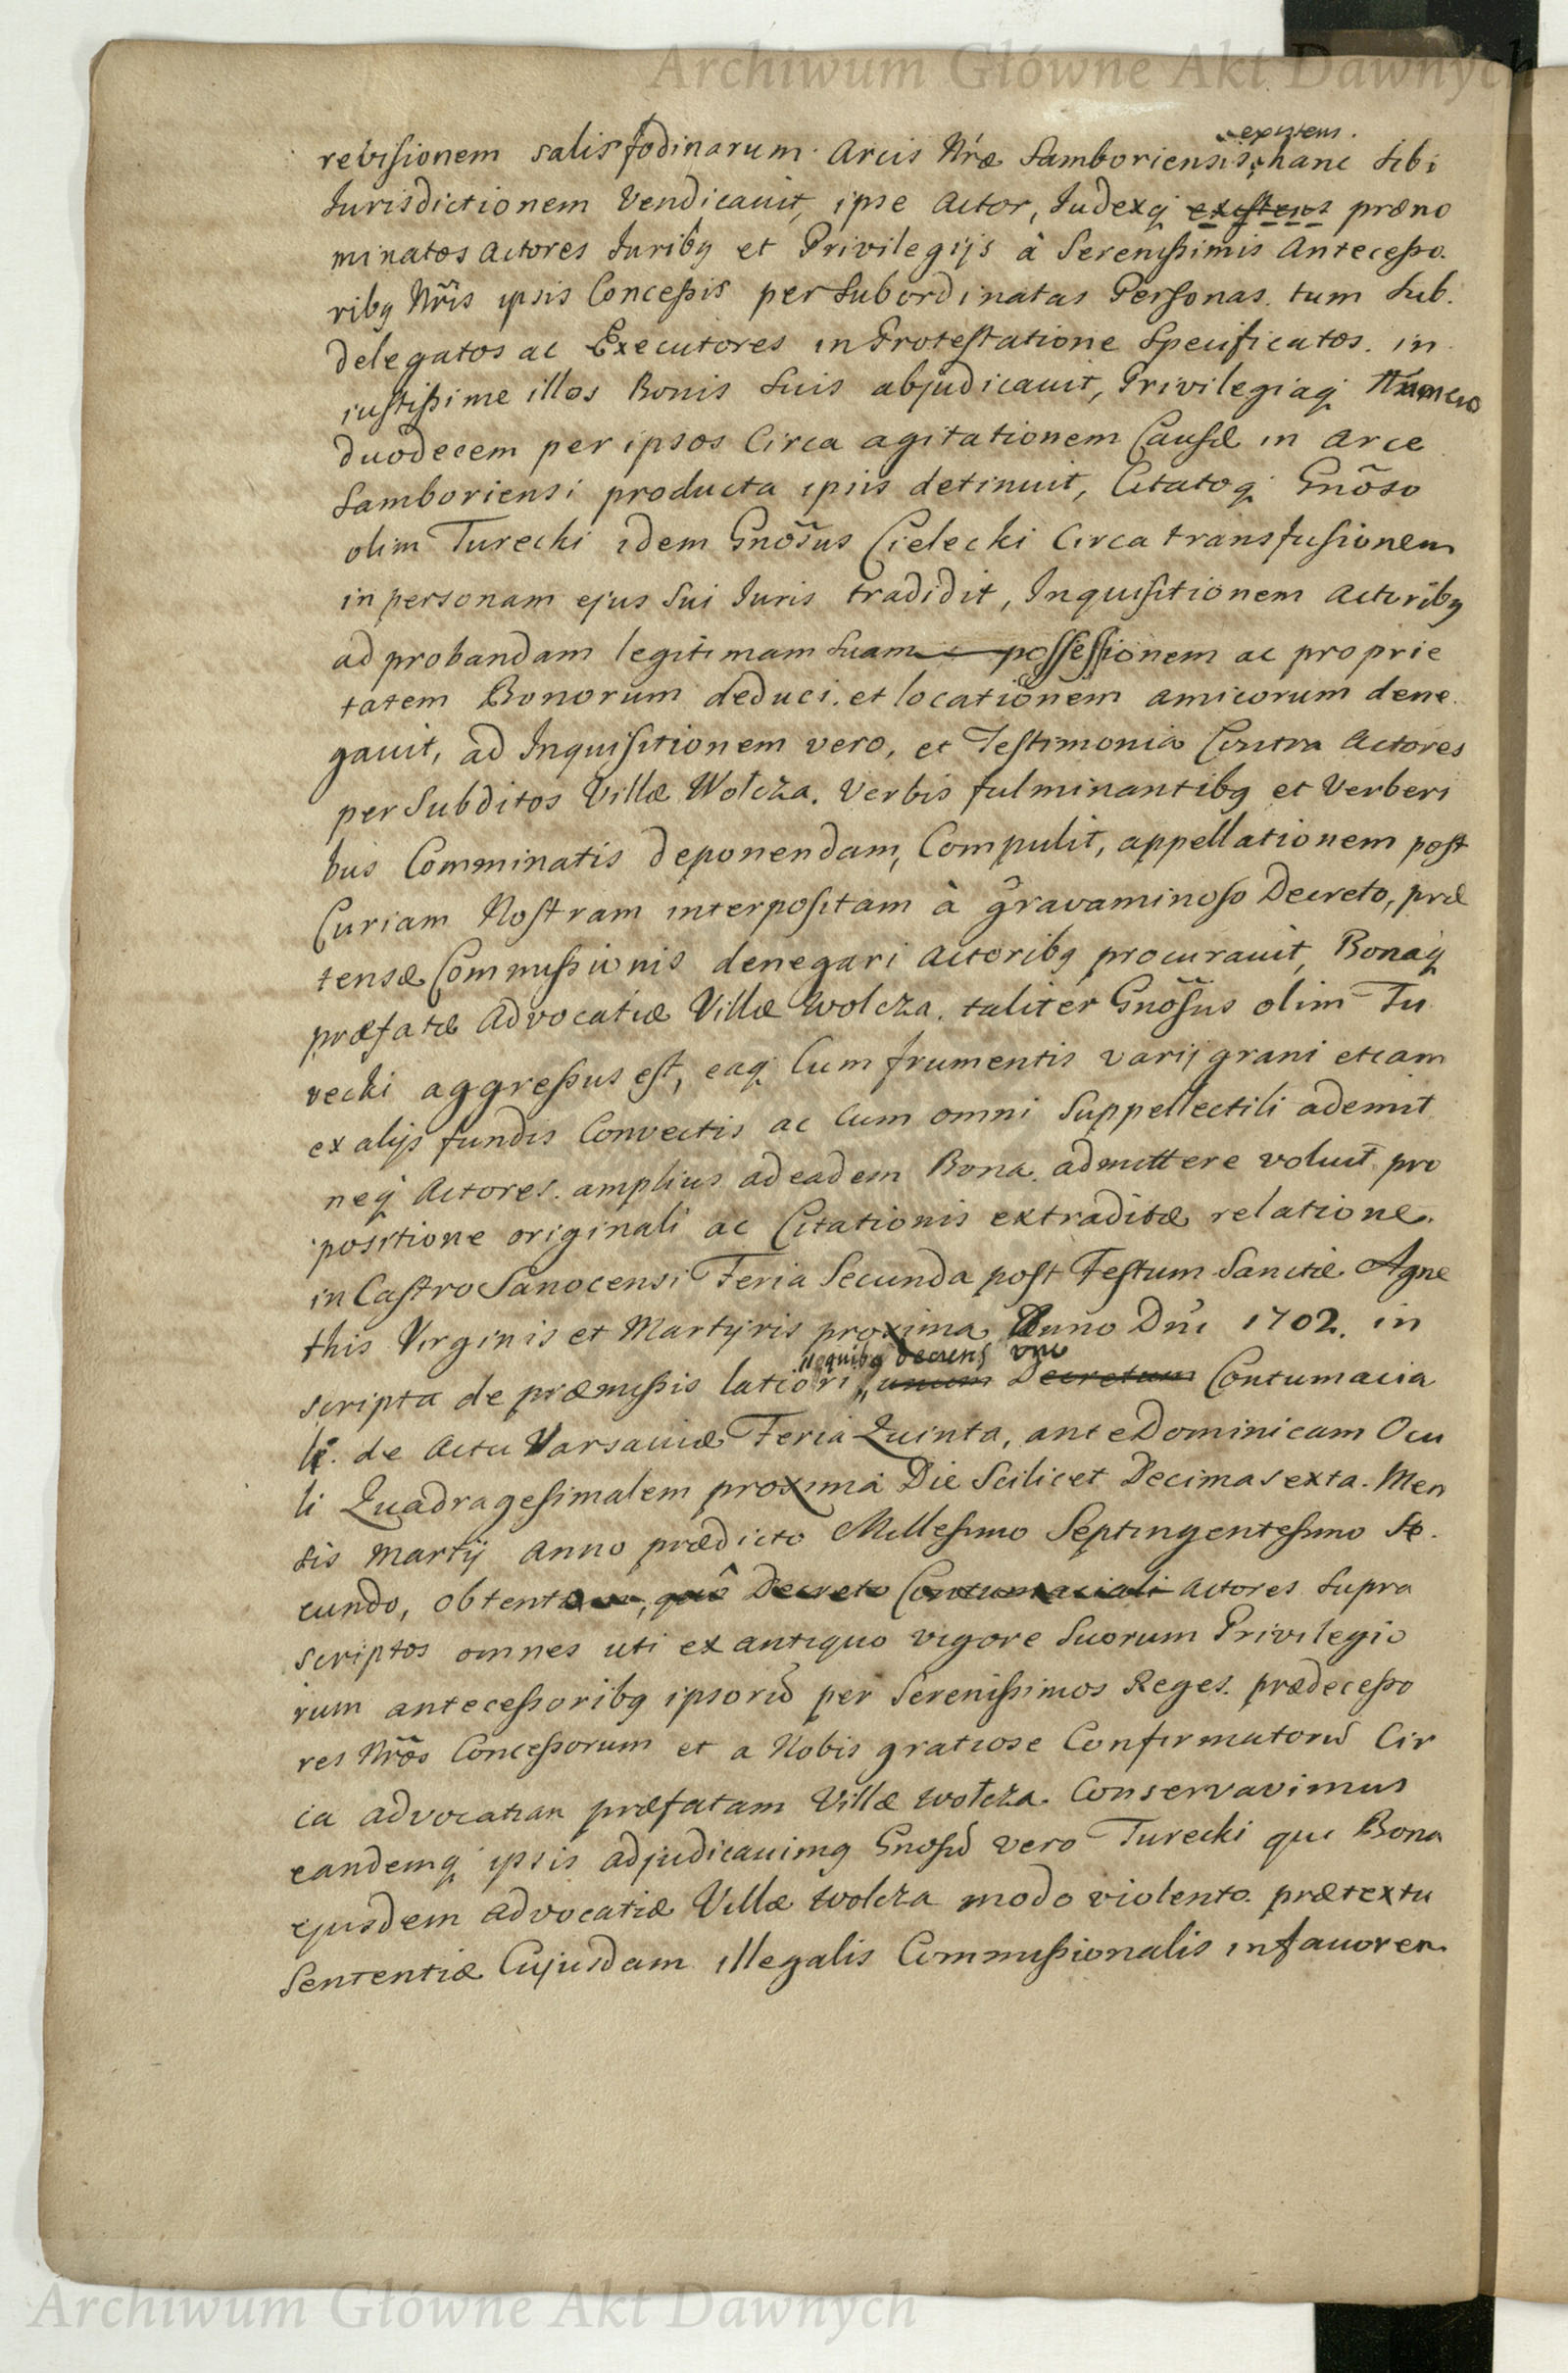 Archiwum Główne Akt Dawnych
existens.
revisionem salis fodinarum Arcis Nrae Samboriensis, hanc sibi
Jurisdictionem vendicavit, ipse Actor, Judexq existens praeno
minatos Actores Juribq et Privilegijs à Serenissimis Antecesso.
ribq Nris ipsis Concessis per subordinatas Personas tum sub.
delegatos ac Executores in Protestatione specificatos in
iustissime illos Bonis suis abjudicauit, Privilegiaq Numero
duodecem per ipsos Circa agitationem Causae in Arce
Samboriensi producta ipsis detinuit, Citatoq Gnoso
olim Turecki idem Gnosus Cielecki Circa transfusionem
in personam ejus sui Juris tradidit, Inquisitionem Actoribq
ad probandam legitimam suam possessionem ac proprie
tatem Bonorum deduci et locationem amicorum dene
gauit, ad Inquisitionem vero, et Testimonia Contra Actores
per Subditos Villae Wołcza. Verbis fulminantibq et Verberi
bus Comminatis deponendam, Compulit, appellationem post
Curiam Nostram interpositam à gravaminoso Decreto, prae
tensae Commissionis denegari Actoribq procurauit, Bonaq
praefatae Advocatiae Villae Wolcza. taliter Gnosus olim Tu
recki aggressus est, eaq Cum frumentis varij grani etiam
ex alijs fundis Convectis ac Cum omni Suppellectili ademit
neq Actores amplius ad eadem Bona admittere voluit pro
positione originali ac Citationis extraditae relatione
in Castro Sanocensi Feria Secunda post Festum Sanctae Agne
this Virginis et Martyris proxima Anno Dni 1702. in
scripta de praemissis latiori, unum Decretum Contumacia
li. de Actu Varsaviae Feria Quinta, ante Dominicam Ocu
li Quadragesimalem proxima Die Scilicet Decima sexta Men
sis Martij Anno praedicto Millesimo Septingentesimo Se.
cundo, obtento Decreto Contumaciali Actores supra
scriptos omnes uti ex antiquo vigore suorum Privilegio
rum antecessoribq ipsorũ per Serenissimos Reges praedecesso
res Nros Concessorum et a Nobis gratiose Confirmatorũ Cir
ca advocatian praefatam Villae Wołcza Conservavimus
eandemq ipsis adjudicauimq Gnosũ vero Turecki qui Bona
ejusdem Advocatiae Villae Wolcza modo violento praetextu
Sententiae Cujusdam illegalis Commissionalis in fauorem
Archiwum Główne Akt Dawnych